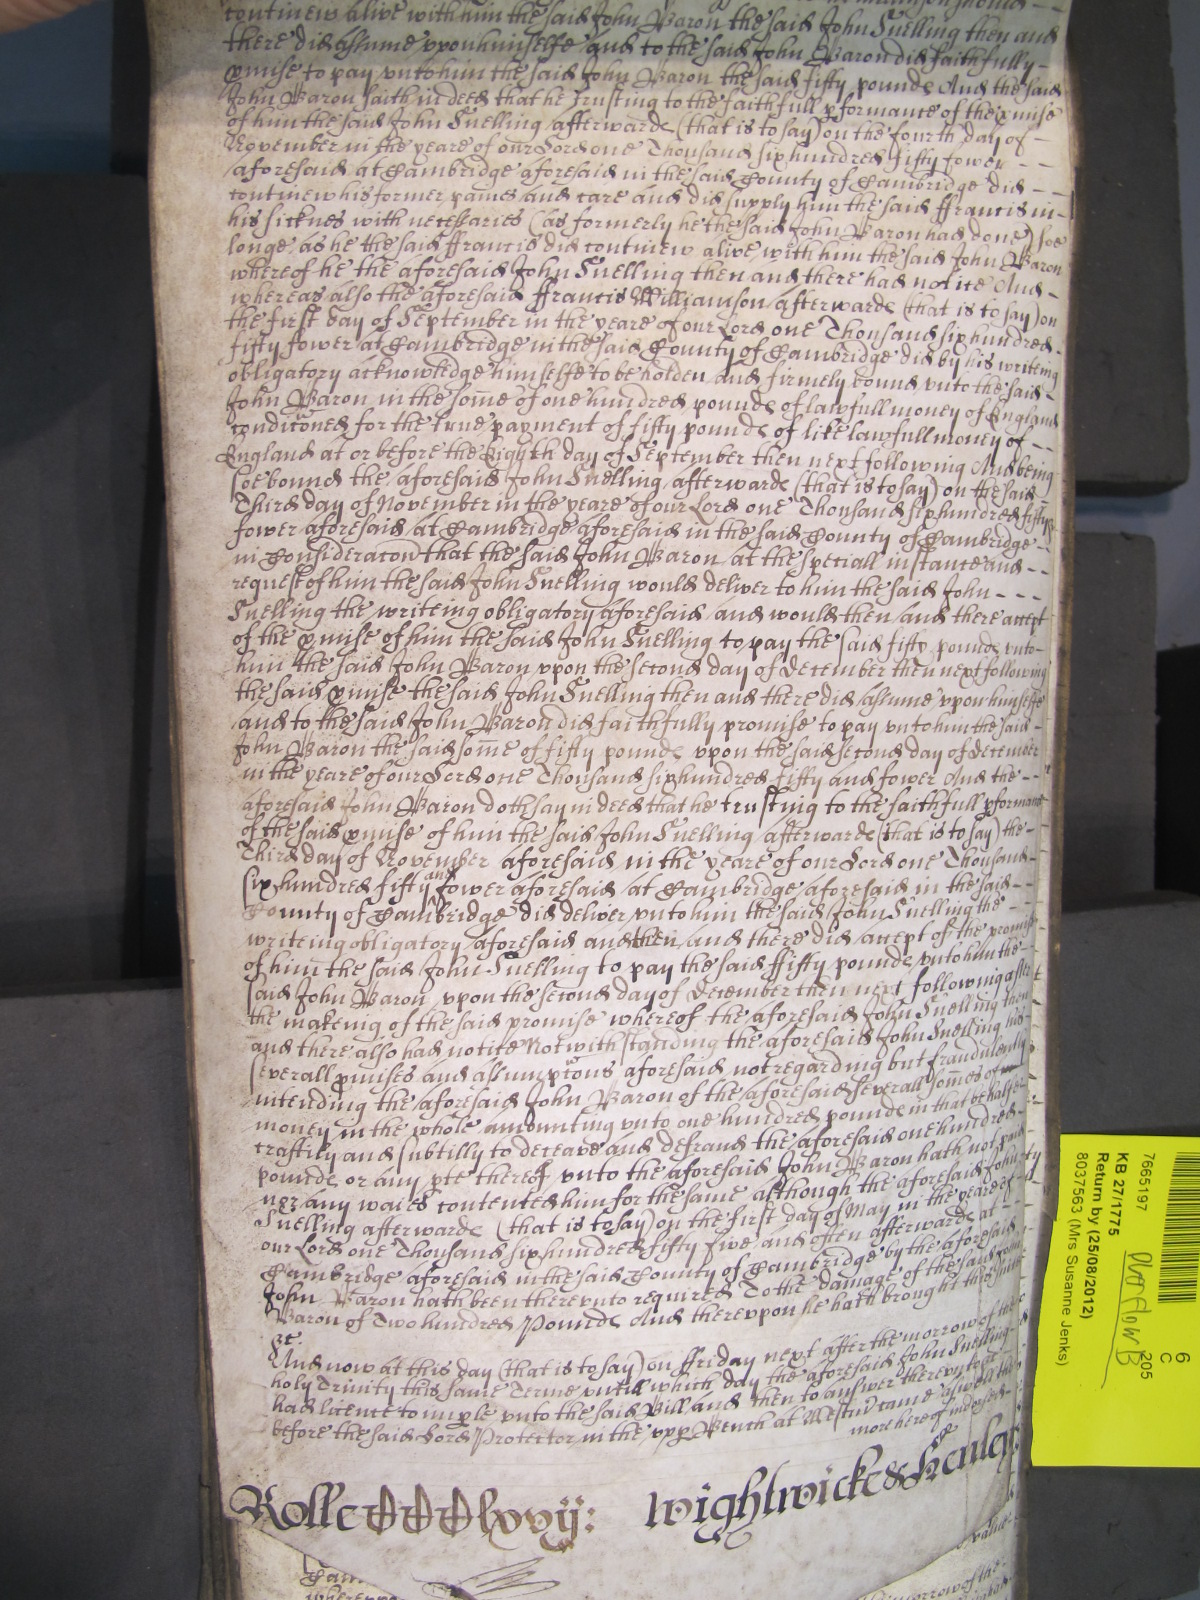 continew alive with him the said John Baron the said John Snelling then and
there did assume vpon himselfe and to the said John Baron did faithfully
pmise to pay vnto him the said John Baron the said fifty pounds And the said
John Baron saith in deed that he trusting to the faithfull pformance of the pmise
of him the said John Snelling afterwards (that is to say) on the fourth day of
November in the yeare of our Lord one Thousand six hundred fifty fower
aforesaid at Cambridge aforesaid in the said County of Cambridge did
continew his former paines and care and did supply him the said ffrancis in
his sicknes with necessaries (as formerly he the said John Baron had done) soe
longe as he the said ffrancis did continew alive with him the said John Baron
whereof he the aforesaid John Snelling then and there had notice And
whereas also the aforesaid ffrancis Williamson afterwards (that is to say) on
the first day of September in the yeare of our Lord one Thousand six hundred
fifty fower at Cambridge in the said County of Cambridge did by his writeing
obligatory acknowledge himselfe to be holden and firmely bound vnto the said
John Baron in the some of one hundred pounds of lawfull money of England
conditoned for the true payment of fifty pounds of like lawfull money of
England at or before the Eighth day of September then next following And being
soe bound the aforesaid John Snelling afterwards (that is to say) on the said
Third day of November in the yeare of our Lord one Thousand six hundred fifty
fower aforesaid at Cambridge aforesaid in the said County of Cambridge
in Consideracon that the said John Baron at the speciall instance and
request of him the said John Snelling would deliver to him the said John
Snelling the writeing obligatory aforesaid and would then and there accept
of the pmise of him the said John Snelling to pay the said fifty pounds vnto
him the said John Baron vpon the second day of December then next following
the said pmise the said John Snelling then and there did assume vpon himselfe
and to the said John Baron did faithfully promise to pay vnto him the said
John Baron the said some of fifty pounds vpon the said second day of December
in the yeare of our Lord one Thousand six hundred fifty and fower And the
aforesaid John Baron doth say in deed that he trusting to the faithfull pformance
of the said pmise of him the said John Snelling afterwards (that is to say) the
Third day of November aforesaid in the yeare of our Lord one Thousand
six hundred fifty and fower aforesaid at Cambridge aforesaid in the said
County of Cambridge did deliver vnto him the said John Snelling the
writeing obligatory aforesaid and then and there did accept of the promise
of him the said John Snelling to pay the said ffifty pounds vnto him the
said John Baron vpon the second day of December then next following after
the makeing of the said promise whereof the aforesaid John Snelling then
and there also had notice Notwithstanding the aforesaid John Snelling his
severall pmises and assumptons aforesaid not regarding but fraudulently
intending the aforesaid John Baron of the aforesaid severall somes of
money in the whole amounting vnto one hundred pounds in that behalfe
craftily and subtilly to deceave and defraud the aforesaid one hundred
pounds or any pte thereof vnto the aforesaid John Baron hath not paid
nor any waies contented him for the same although the aforesaid John
Snelling afterwards (that is to say) on the first day of May in the yeare of
our Lord one Thousand six hundred fifty five and often afterwards at
Cambridge aforesaid in the said County of Cambridge by the aforesaid
John Baron hath been therevnto required To the damage of the said John
Baron of Two hundred Pounds And therevpon he hath brought this suite
&c.
And now at this day (that is to say) on ffriday next after the morrow of the
holy Trinity this same Terme vntill which day the aforesaid John Snelling
had licence to imple vnto the said Bill and then to answer therevnto
before the said Lord Protector in the vpp Bench at Westm came aswell the
more here of indorsed
Rolle lxvij: Wightwicke & Henley
7665197
KB 27/1775
Return by (25/08/2012)
8037563 (Mrs Susanne Jenks)
6
C
205
overflow B